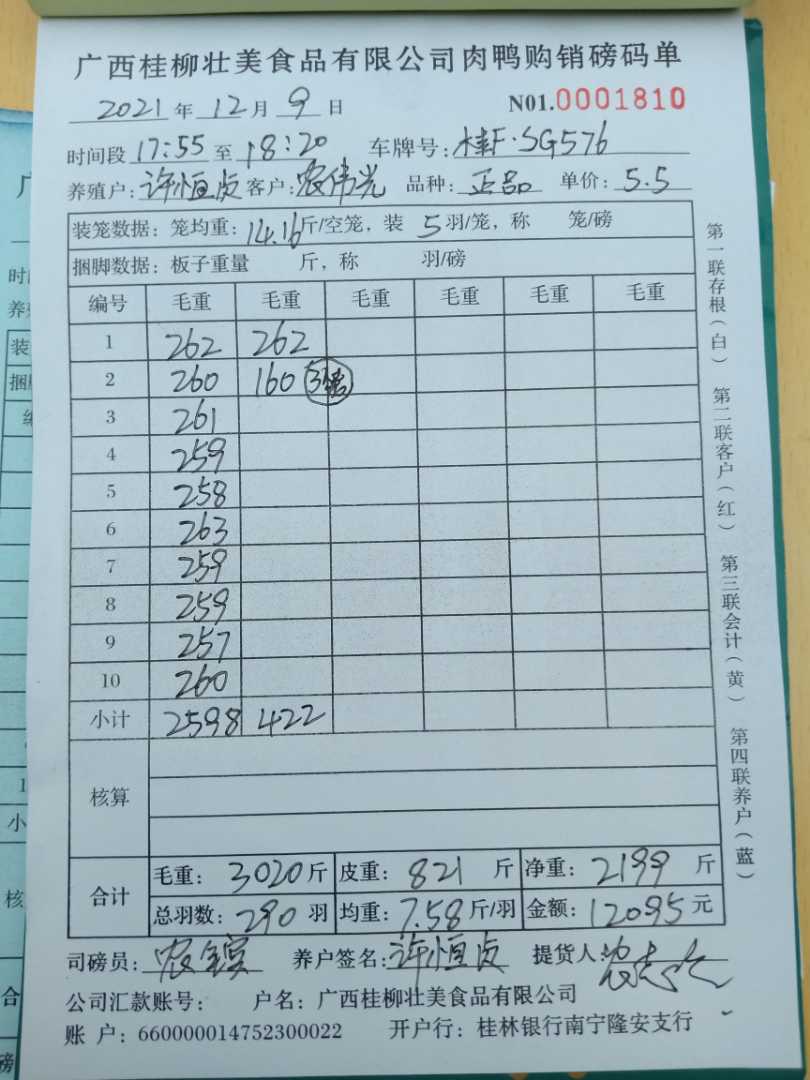 广西桂柳壮美食品有限公司肉鸭购销磅码单
2021 年 12 月 9 日 N01.0001810
时间段 17:55 至 18:20 车牌号: 桂F·SG576
养殖户: 许恒贞 客户: 农伟光 品种: 正品 单价: 5.5
装笼数据: 笼均重: 14.16 斤/空笼, 装 5 羽/笼, 称 笼/磅
捆脚数据: 板子重量 斤, 称 羽/磅
编号 毛重 毛重 毛重 毛重 毛重 毛重
1 262 262
2 260 160 3
3 261
4 259
5 258
6 263
7 259
8 259
9 257
10 260
小计 2598 422
核算
合计
毛重: 3020 斤 皮重: 821 斤 净重: 2199 斤
总羽数: 290 羽 均重: 7.58 斤/羽 金额: 12095 元
司磅员: 农 养户签名: 许恒贞 提货人: 农
公司汇款账号: 户名: 广西桂柳壮美食品有限公司
账 户: 660000014752300022 开户行: 桂林银行南宁隆安支行
第一联存根(白) 第二联客户(红) 第三联会计(黄) 第四联养户(蓝)